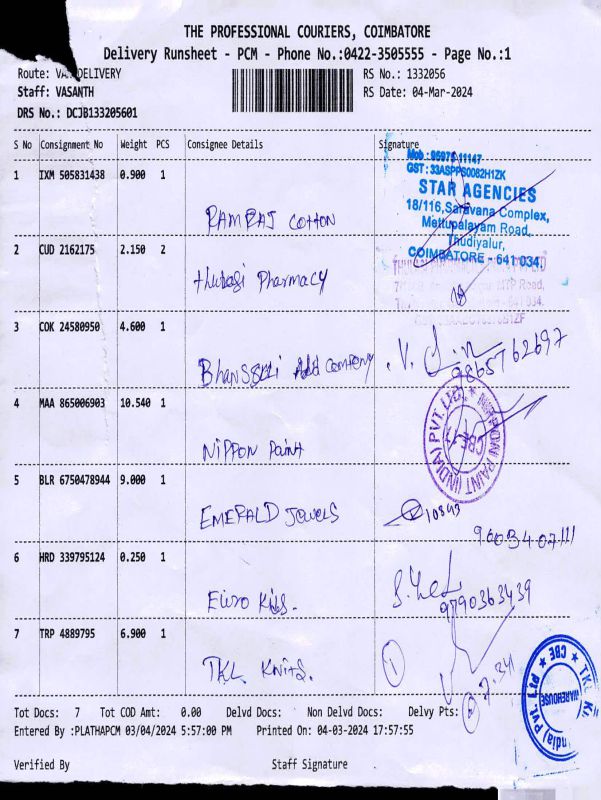 THE PROFESSIONAL COURIERS, COIMBATORE
Delivery Runsheet - PCM - Phone No.:0422-3505555 - Page No.:1
Route: VAN DELIVERY RS No.: 1332056
Staff: VASANTH RS Date: 04-Mar-2024
DRS No.: DCJB133205601
S No Consignment No Weight PCS Consignee Details Signature
Mob : 95975 11147
GST : 33ASPPS0082H1ZK
1 IXM 505831438 0.900 1
STAR AGENCIES
18/116, Saravana Complex,
RAMRAJ COTTON
Mettupalayam Road,
Thudiyalur,
2 CUD 2162175 2.150 2
COIMBATORE - 641 034.
MTP Road,
thulasi Pharmacy
641 034.
3 COK 24580950 4.600 1
V.
9865762697
Bhanssali Add company
4 MAA 865006903 10.540 1
NIPPON PAINT (INDIA) PVT. LTD. CBE-17
Nippon Paint
5 BLR 6750478944 9.000 1
EMERALD JEWELS
10343
9603407111
6 HRD 339795124 0.250 1
Euro Kids.
9790363439
7 TRP 4889795 6.900 1
TKL Knits.
1
7.341
WAREHOUSE CBE (India) Pvt.
Tot Docs: 7 Tot COD Amt: 0.00 Delvd Docs: Non Delvd Docs: Delvy Pts:
Entered By :PLATHAPCM 03/04/2024 5:57:00 PM Printed On: 04-03-2024 17:57:55
Verified By Staff Signature